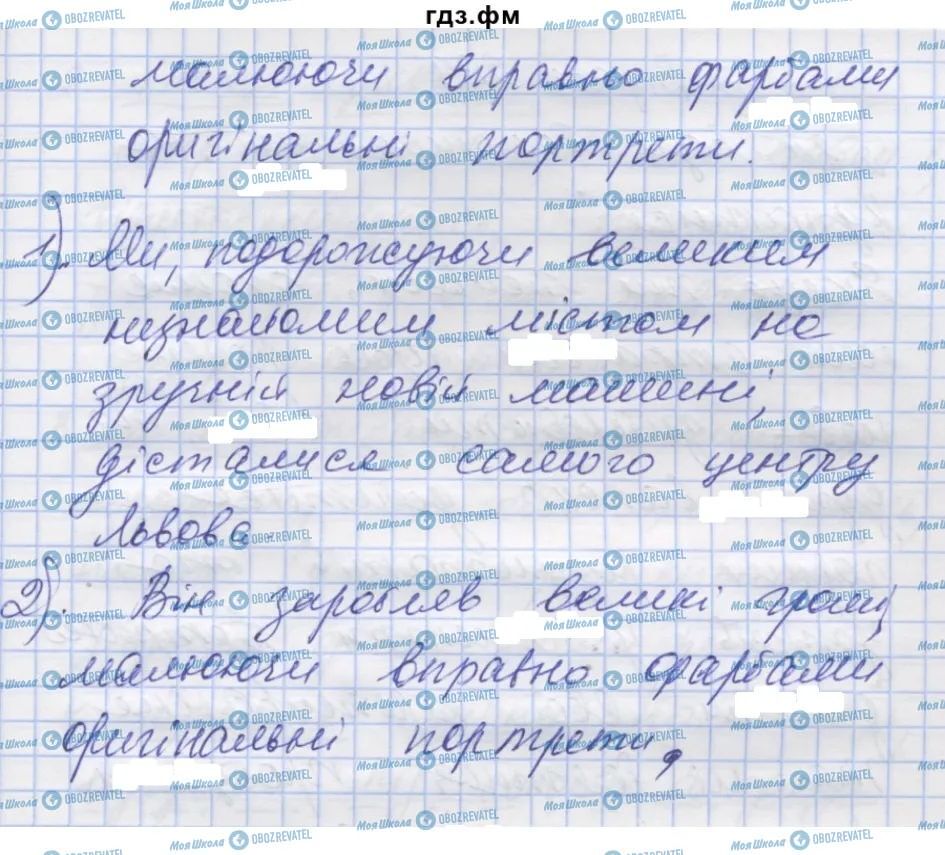 гдз.фм
малюючи вправно фарбами
оригінальні портрети.
1). Ми, подорожуючи великим
незнайомим містом на
зручній новій машині,
дісталися самого центру
Львова.
2). Він заробляв великі гроші,
малюючи вправно фарбами
оригінальні портрети.